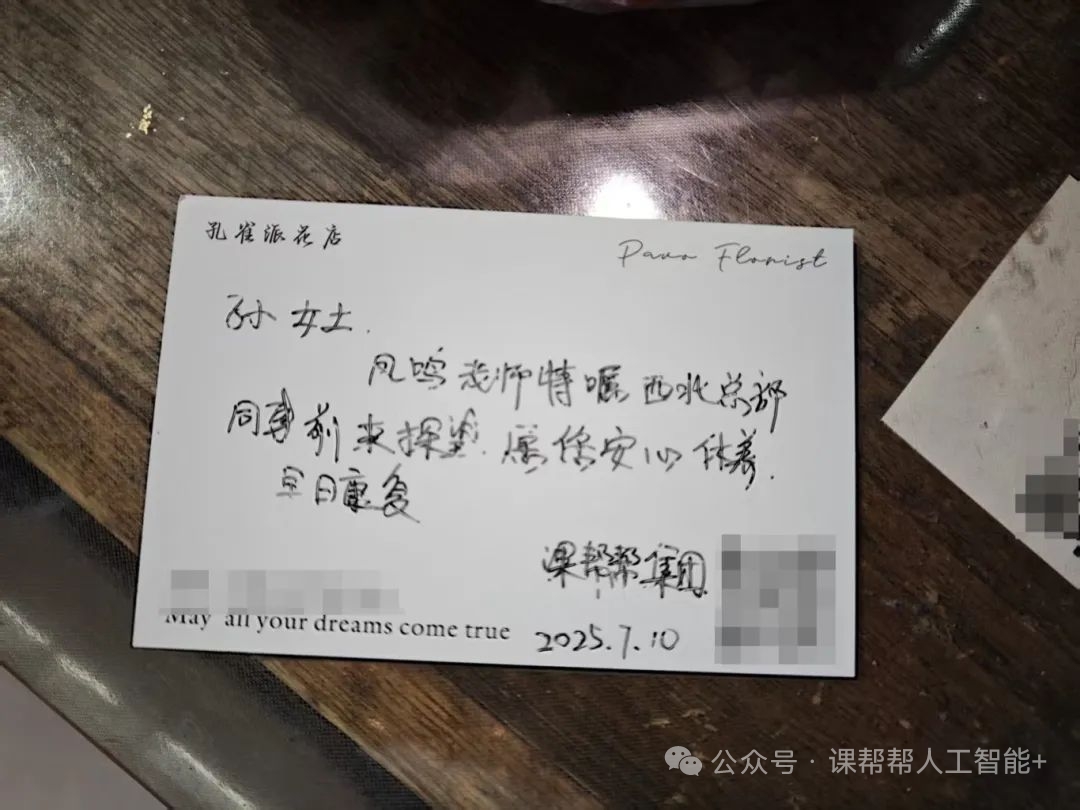 孔雀派花店
Pavo Florist
孙女士.
凤鸣老师特嘱西北总部
同事前来探望.愿您安心休养.
早日康复
课帮帮集团
May all your dreams come true
2025.7.10
公众号·课帮帮人工智能+